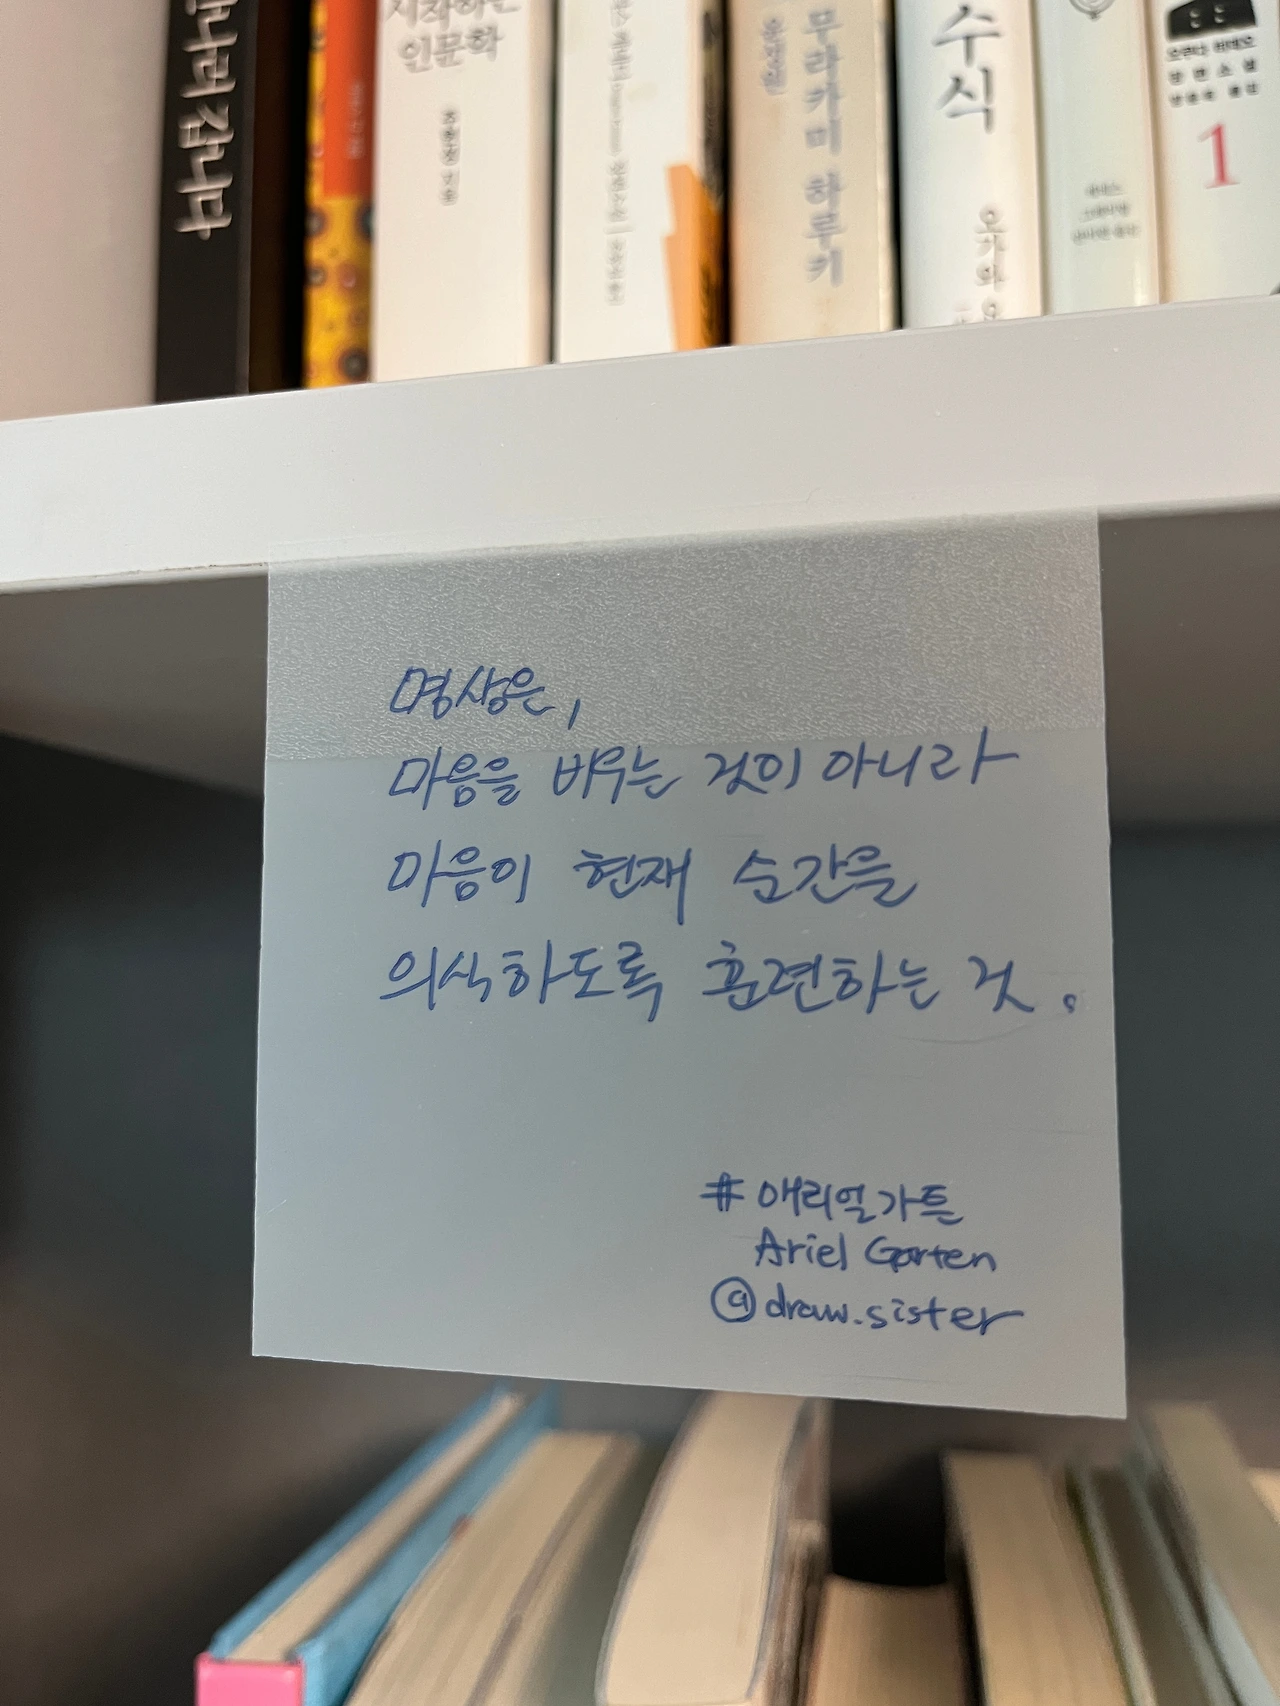 인문학
무라카미 하루키
수식
1
명상은,
마음을 비우는 것이 아니라
마음이 현재 순간을
의식하도록 훈련하는 것。
# 애리얼가튼
Ariel Garten
@draw.sister